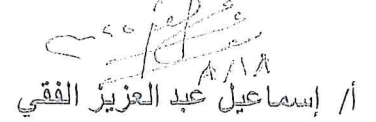 ٨/١٨
أ/ إسماعيل عبد العزيز الفقي